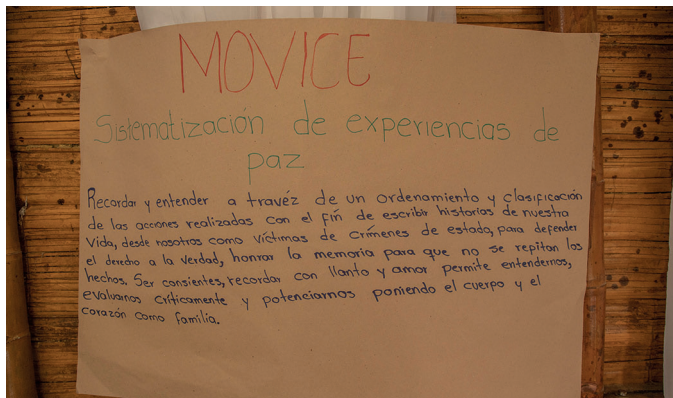 MOVICE
Sistematización de experiencias de
paz
Recordar y entender a travéz de un ordenamiento y clasificación
de las acciones realizadas con el fin de escribir historias de nuestra
vida, desde nosotros como víctimas de crímenes de estado, para defender
el derecho a la verdad, honrar la memoria para que no se repitan los
hechos. Ser consientes, recordar con llanto y amor permite entendernos,
evaluarnos críticamente y potenciarnos poniendo el cuerpo y el
corazón como familia.